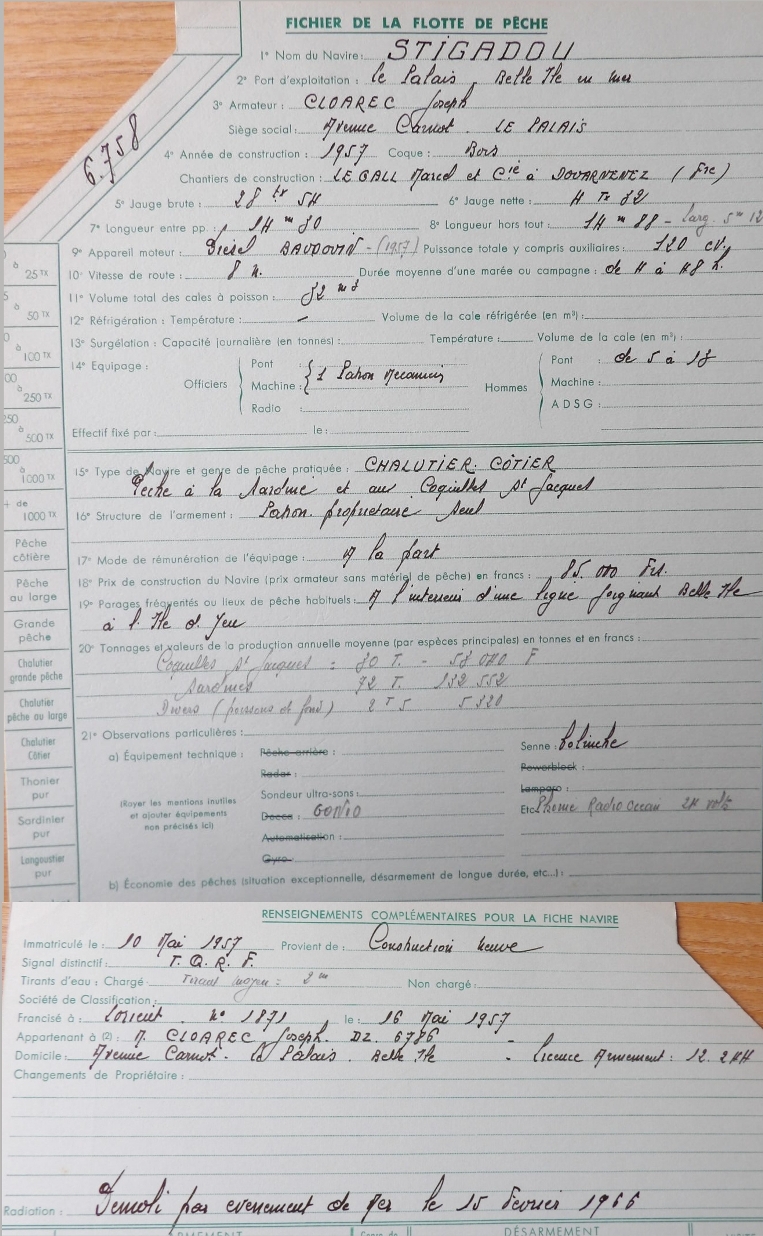 FICHIER DE LA FLOTTE DE PÊCHE
1° Nom du Navire : STIGADOU
2° Port d'exploitation : le Palais, Belle Ile en mer
3° Armateur : CLOAREC Joseph
Siège social : Avenue Carnot. LE PALAIS
6.758
4° Année de construction : 1957 Coque : Bois
Chantiers de construction : LE GALL Marcel et Cie à DOUARNENEZ (Fre)
5° Jauge brute : 28 tx 54 6° Jauge nette :
7° Longueur entre pp. : 14 m 8° Longueur hors tout : 14 m 88 - larg. 5 m 12
9° Appareil moteur : Diesel BAUDOUIN - (1957) Puissance totale y compris auxiliaires : 120 cv.
10° Vitesse de route : 8 n. Durée moyenne d'une marée ou campagne : de à h.
11° Volume total des cales à poisson : 32 m3
12° Réfrigération : Température : — Volume de la cale réfrigérée (en m³) :
13° Surgélation : Capacité journalière (en tonnes) : Température : Volume de la cale (en m³) :
14° Equipage : Officiers Pont Machine : Radio : 1 Patron Mecanicien Hommes Pont : de 5 à 13 Machine : A D S G :
Effectif fixé par : le :
15° Type de Navire et genre de pêche pratiquée : CHALUTIER. CÔTIER
Pêche à la Sardine et aux Coquilles St Jacques
16° Structure de l'armement : Patron. propriétaire seul
17° Mode de rémunération de l'équipage : A la part
18° Prix de construction du Navire (prix armateur sans matériel de pêche) en francs : 85.000 Frs.
19° Parages fréquentés ou lieux de pêche habituels : A l'interieur d'une ligne joignant Belle Ile
à l'Ile d'Yeu
20° Tonnages et valeurs de la production annuelle moyenne (par espèces principales) en tonnes et en francs :
Coquilles St Jacques : T. - F
Sardines 72 T. 132 552
Divers (poissons de fond) 2 T 5 5 320
21° Observations particulières :
a) Équipement technique : Pêche arrière : Senne : bolinche
Radar : Powerblock :
Sondeur ultra-sons : Lamparo :
(Rayer les mentions inutiles et ajouter équipements non précisés ici)
Decca : GONIO Etc. Phonie Radio Ocean 24 volts
Automatisation :
Gyro :
b) Économie des pêches (situation exceptionnelle, désarmement de longue durée, etc...) :
à 25 TX
à 50 TX
à 100 TX
à 250 TX
à 500 TX
à 1000 TX
+ de 1000 TX
Pêche côtière
Pêche au large
Grande pêche
Chalutier grande pêche
Chalutier pêche au large
Chalutier Côtier
Thonier pur
Sardinier pur
Langoustier pur
RENSEIGNEMENTS COMPLÉMENTAIRES POUR LA FICHE NAVIRE
Immatriculé le : 10 Mai 1957 Provient de : Construction neuve
Signal distinctif : T. Q. R. F.
Tirants d'eau : Chargé : Tirant moyen : 2 m Non chargé :
Société de Classification :
Francisé à : Lorient n° 1871 le : 16 Mai 1957
Appartenant à (2) : M. CLOAREC Joseph. DZ. 6786 -
Domicile : Avenue Carnot. le Palais. Belle Ile - licence Armement : 12. 244
Changements de Propriétaire :
Radiation : Demoli par evenement de Mer le 15 Fevrier 1966
DÉSARMEMENT